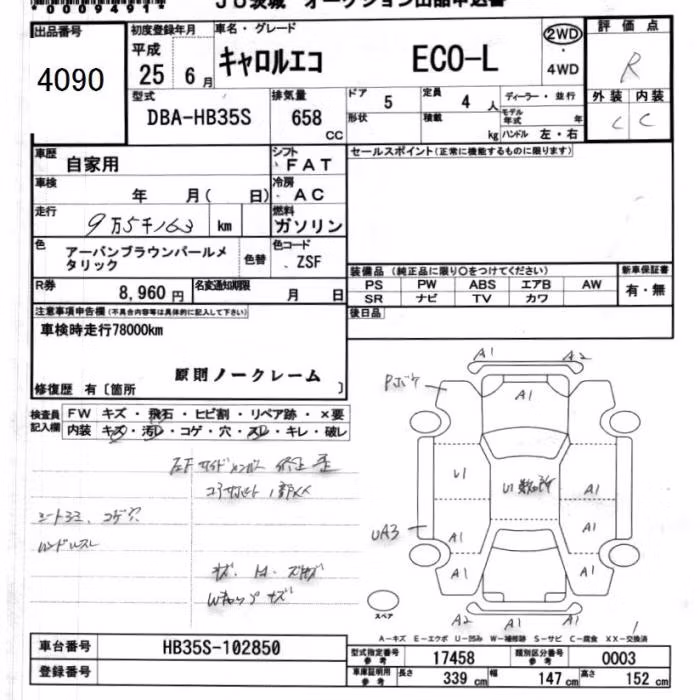 *0009491*
JU茨城 オークション出品申込書
出品番号
4090
初度登録年月
平成
25 6月
車名・グレード
キャロルエコ ECO-L
2WD
・
4WD
評価点
R
外装 内装
C C
型式
DBA-HB35S
排気量
658
CC
ドア 5
形状
定員 4 人
積載 kg
ディーラー・並行
モデル年式 年
ハンドル 左・右
車歴 自家用
シフト FAT
セールスポイント(正常に機能するものに限ります)
車検 年 月( 日)
冷房 AC
走行 9万5千163 km
燃料 ガソリン
色 アーバンブラウンパールメ
タリック
色替
色コード ZSF
R券 8,960 円
名変通知期限 月 日
装備品(純正品に限り○をつけてください)
新車保証書
PS PW ABS エアB AW
有・無
SR ナビ TV カワ
後日品
注意事項申告欄(不具合内容等は具体的に記入して下さい)
車検時走行78000km
原則ノークレーム
修復歴 有〔箇所 〕
検査員
記入欄
FW キズ・飛石・ヒビ割・リペア跡・×要
内装 キズ・汚レ・コゲ・穴・スレ・キレ・破レ
シートシミ、コゲ穴
ハンドルスレ
A1 A2
A1
U1
U1 数ヶ所
A1
UA3
A1 A1
A1 A1
A2 A1
スペア
A-キズ E-エクボ U-凹み W-補修跡 S-サビ C-腐食 XX-交換済
車台番号 HB35S-102850
登録番号
型式指定番号
参考
17458
類別区分番号
参考
0003
車庫証明用
参考
長さ 339 cm 幅 147 cm 高さ 152 cm